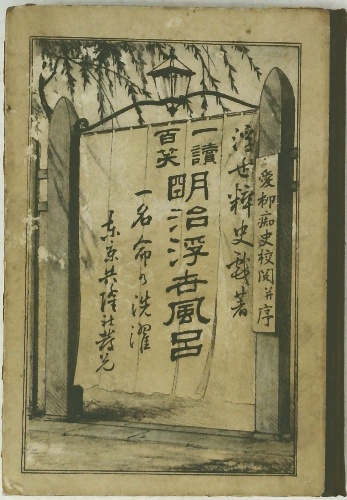 愛柳痴史校閲并序
浮世粋史戯著
一讀
百笑
明治浮世風呂
一名命の洗濯
東京共隆社発兌